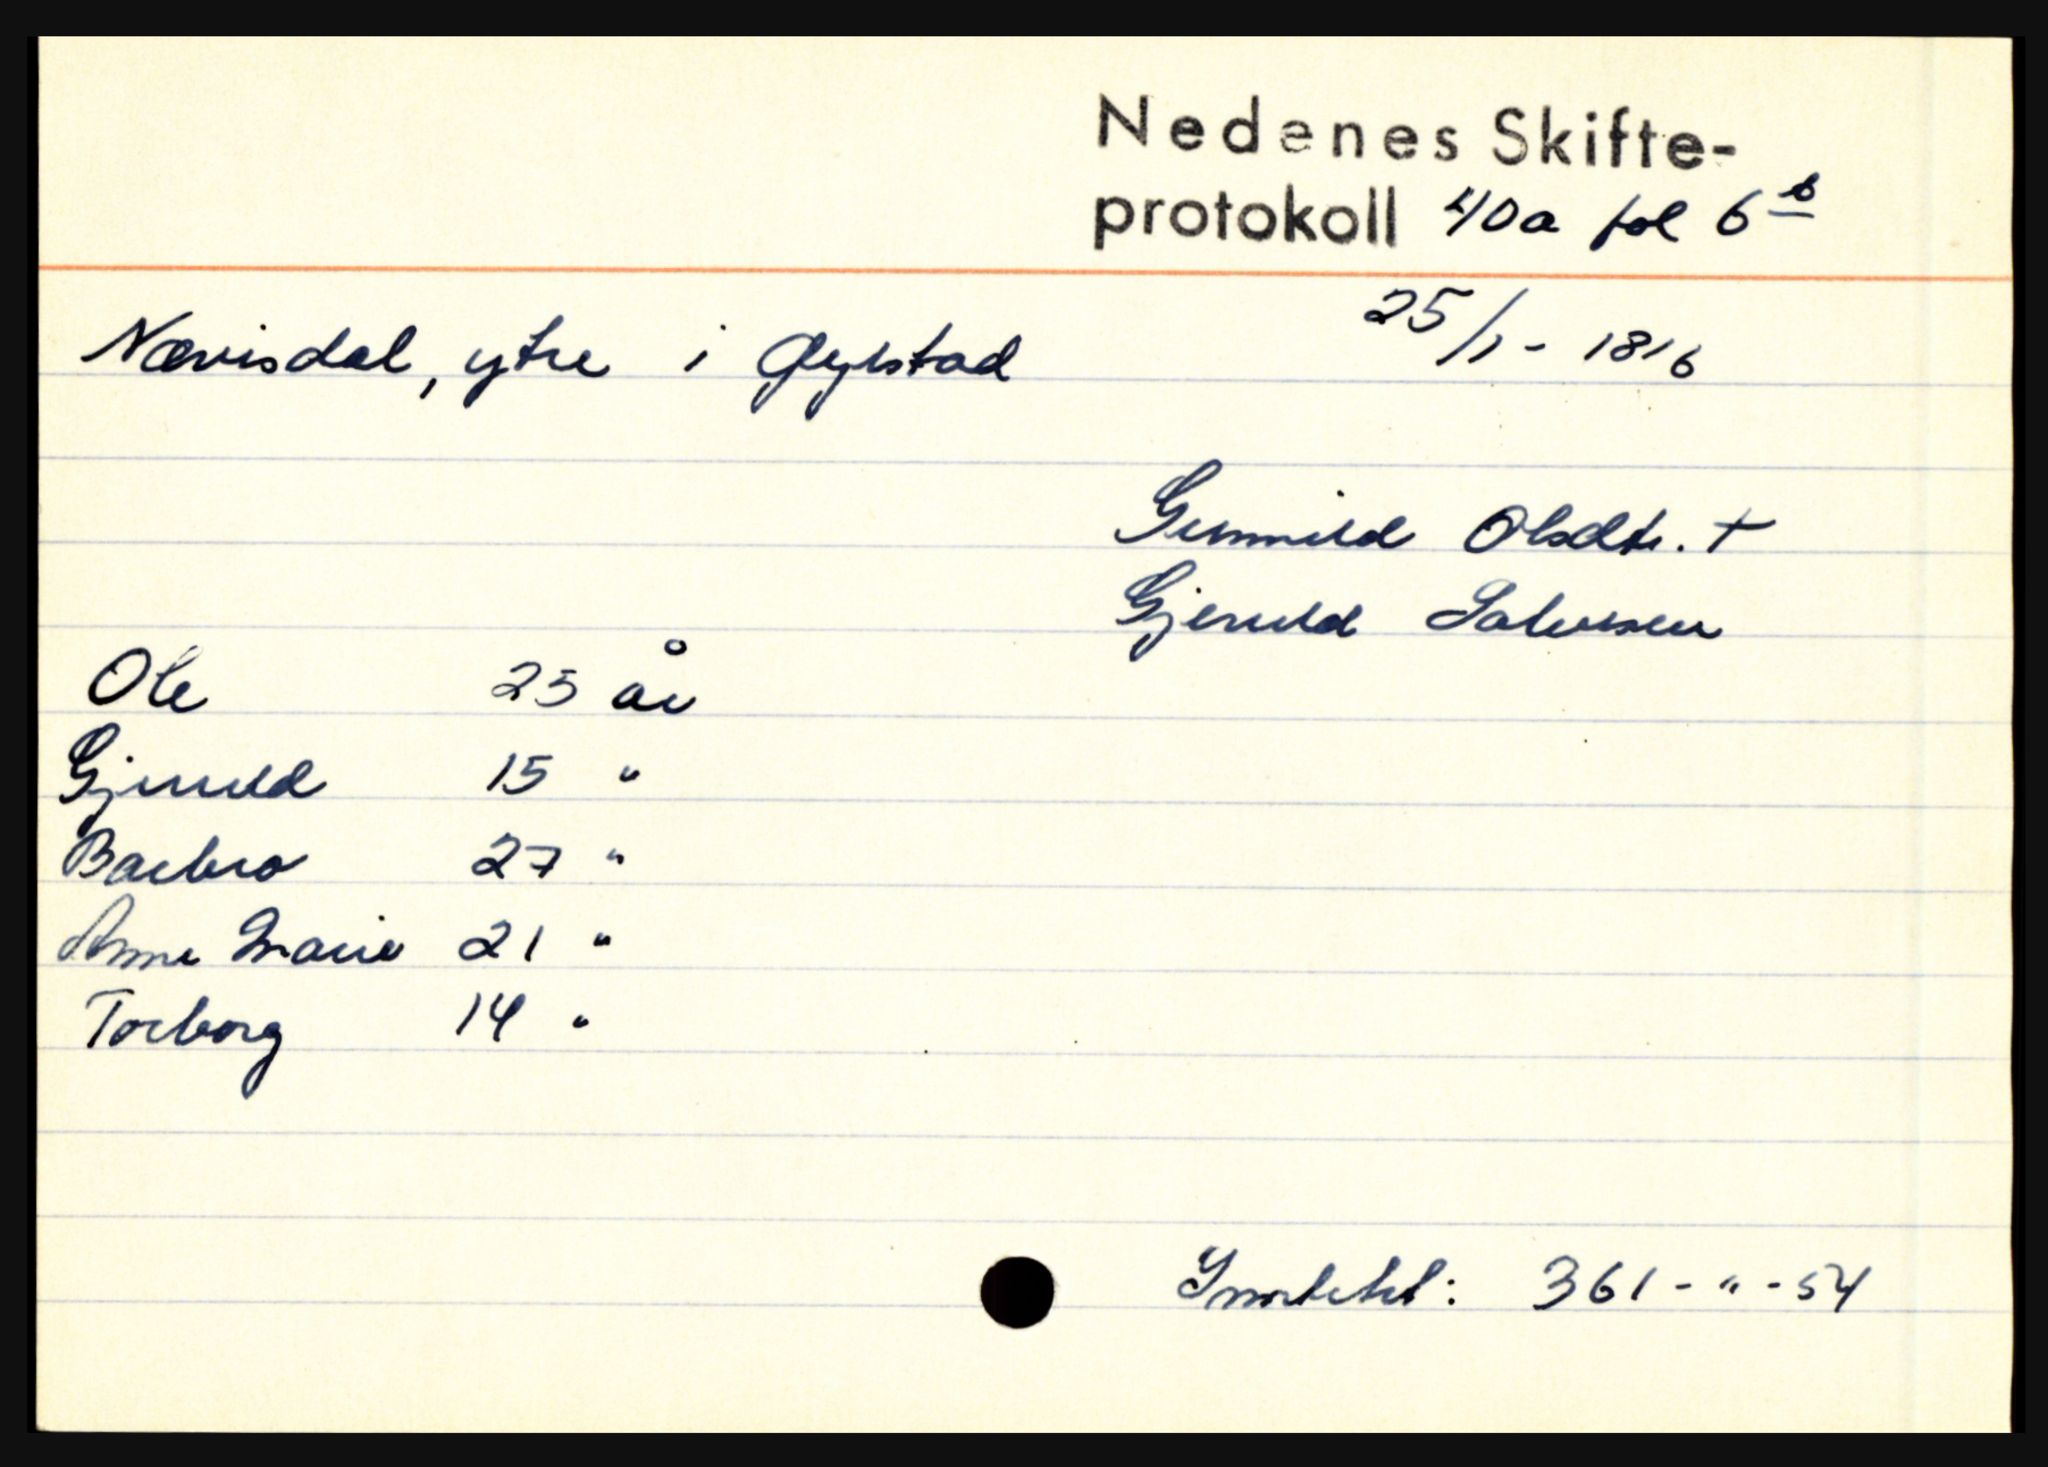 Nedenes Skifte-
protokoll 40a fol 6 b
Nævisdal, ytre i Øyestad 25/1 - 1816
Gunnild Olsdtr. +
Gjeruld Salvesen
Ole 25 år
Gjeruld 15 "
Barbro 27 "
Anne Marie 21 "
Torborg 14 "
361 - " - 54